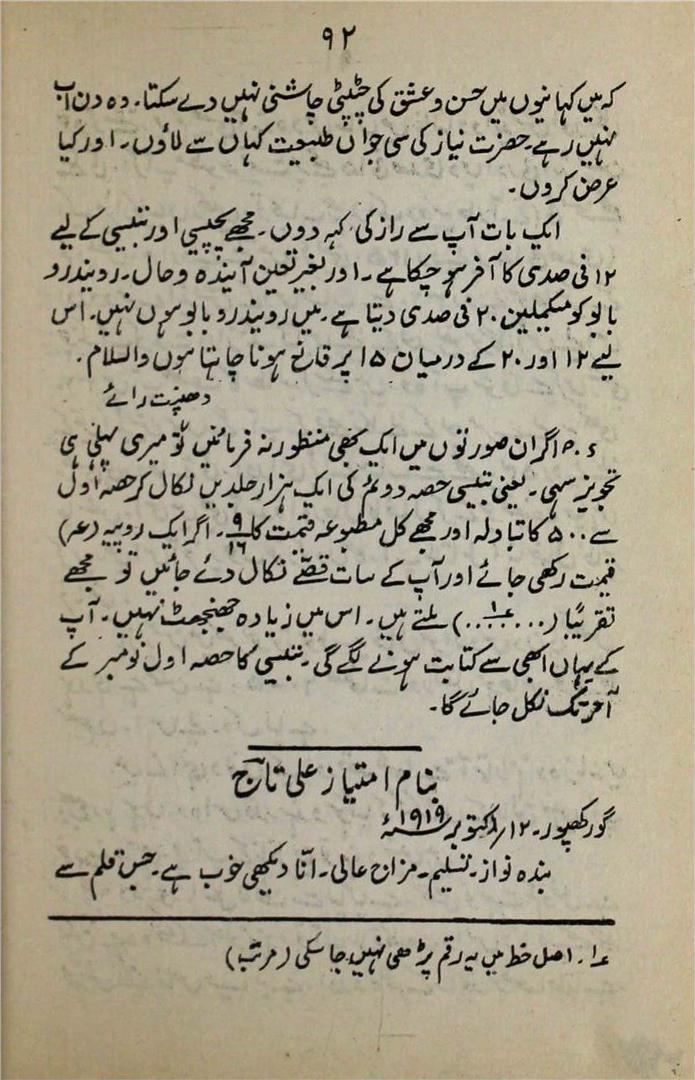 ۹۲
کہ میں کہانیوں میں حسن و عشق کی چٹپٹی چاشنی نہیں دے سکتا۔ وہ دن اب
نہیں رہے۔ حضرت نیاز کی سی جواں طبیعت کہاں سے لاؤں۔ اور کیا
عرض کروں۔
ایک بات آپ سے راز کی کہہ دوں۔ مجھے پچیسی اور بتیسی کے لیے
۱۲ فی صدی کا آفر ہو چکا ہے۔ اور بغیر تعین آیندہ و حال۔ رویندرو
بابو کو میکمیلین ۲۰ فی صدی دیتا ہے۔ میں رویندرو بابو ہوں نہیں۔ اس
لیے ۱۲ اور ۲۰ کے درمیان ۱۵ پر قانع ہونا چاہتا ہوں والسلام۔
دھنپت رائے
اگر ان صورتوں میں ایک بھی منظور نہ فرمائیں تو میری پہلی ہی
تجویز سہی۔ یعنی بتیسی حصہ دوئم کی ایک ہزار جلدیں نکال کر حصہ اول
سے ۵۰۰ کا تبادلہ اور مجھے کل مطبوعہ قیمت کا ۹/۱۶۔ اگر ایک روپیہ (عہ)
قیمت رکھی جائے اور آپ کے سات قصّے نکال دئے جائیں تو مجھے
تقریباً (... ۱ے ...) ملتے ہیں۔ اس میں زیادہ جھنجھٹ نہیں۔ آپ
کے یہاں ابھی سے کتابت ہونے لگے گی۔ بتیسی کا حصہ اول نومبر کے
آخر تک نکل جائے گا۔
بنام امتیاز علی تاج
گورکھپور۔ ۱۲/اکتوبر ۱۹۱۹ء
بندہ نواز۔ تسلیم۔ مزاج عالی۔ انّا دیکھی خوب ہے۔ جس قلم سے
۱ے۔ اصل خط میں یہ رقم پڑھی نہیں جا سکی (مرتب)